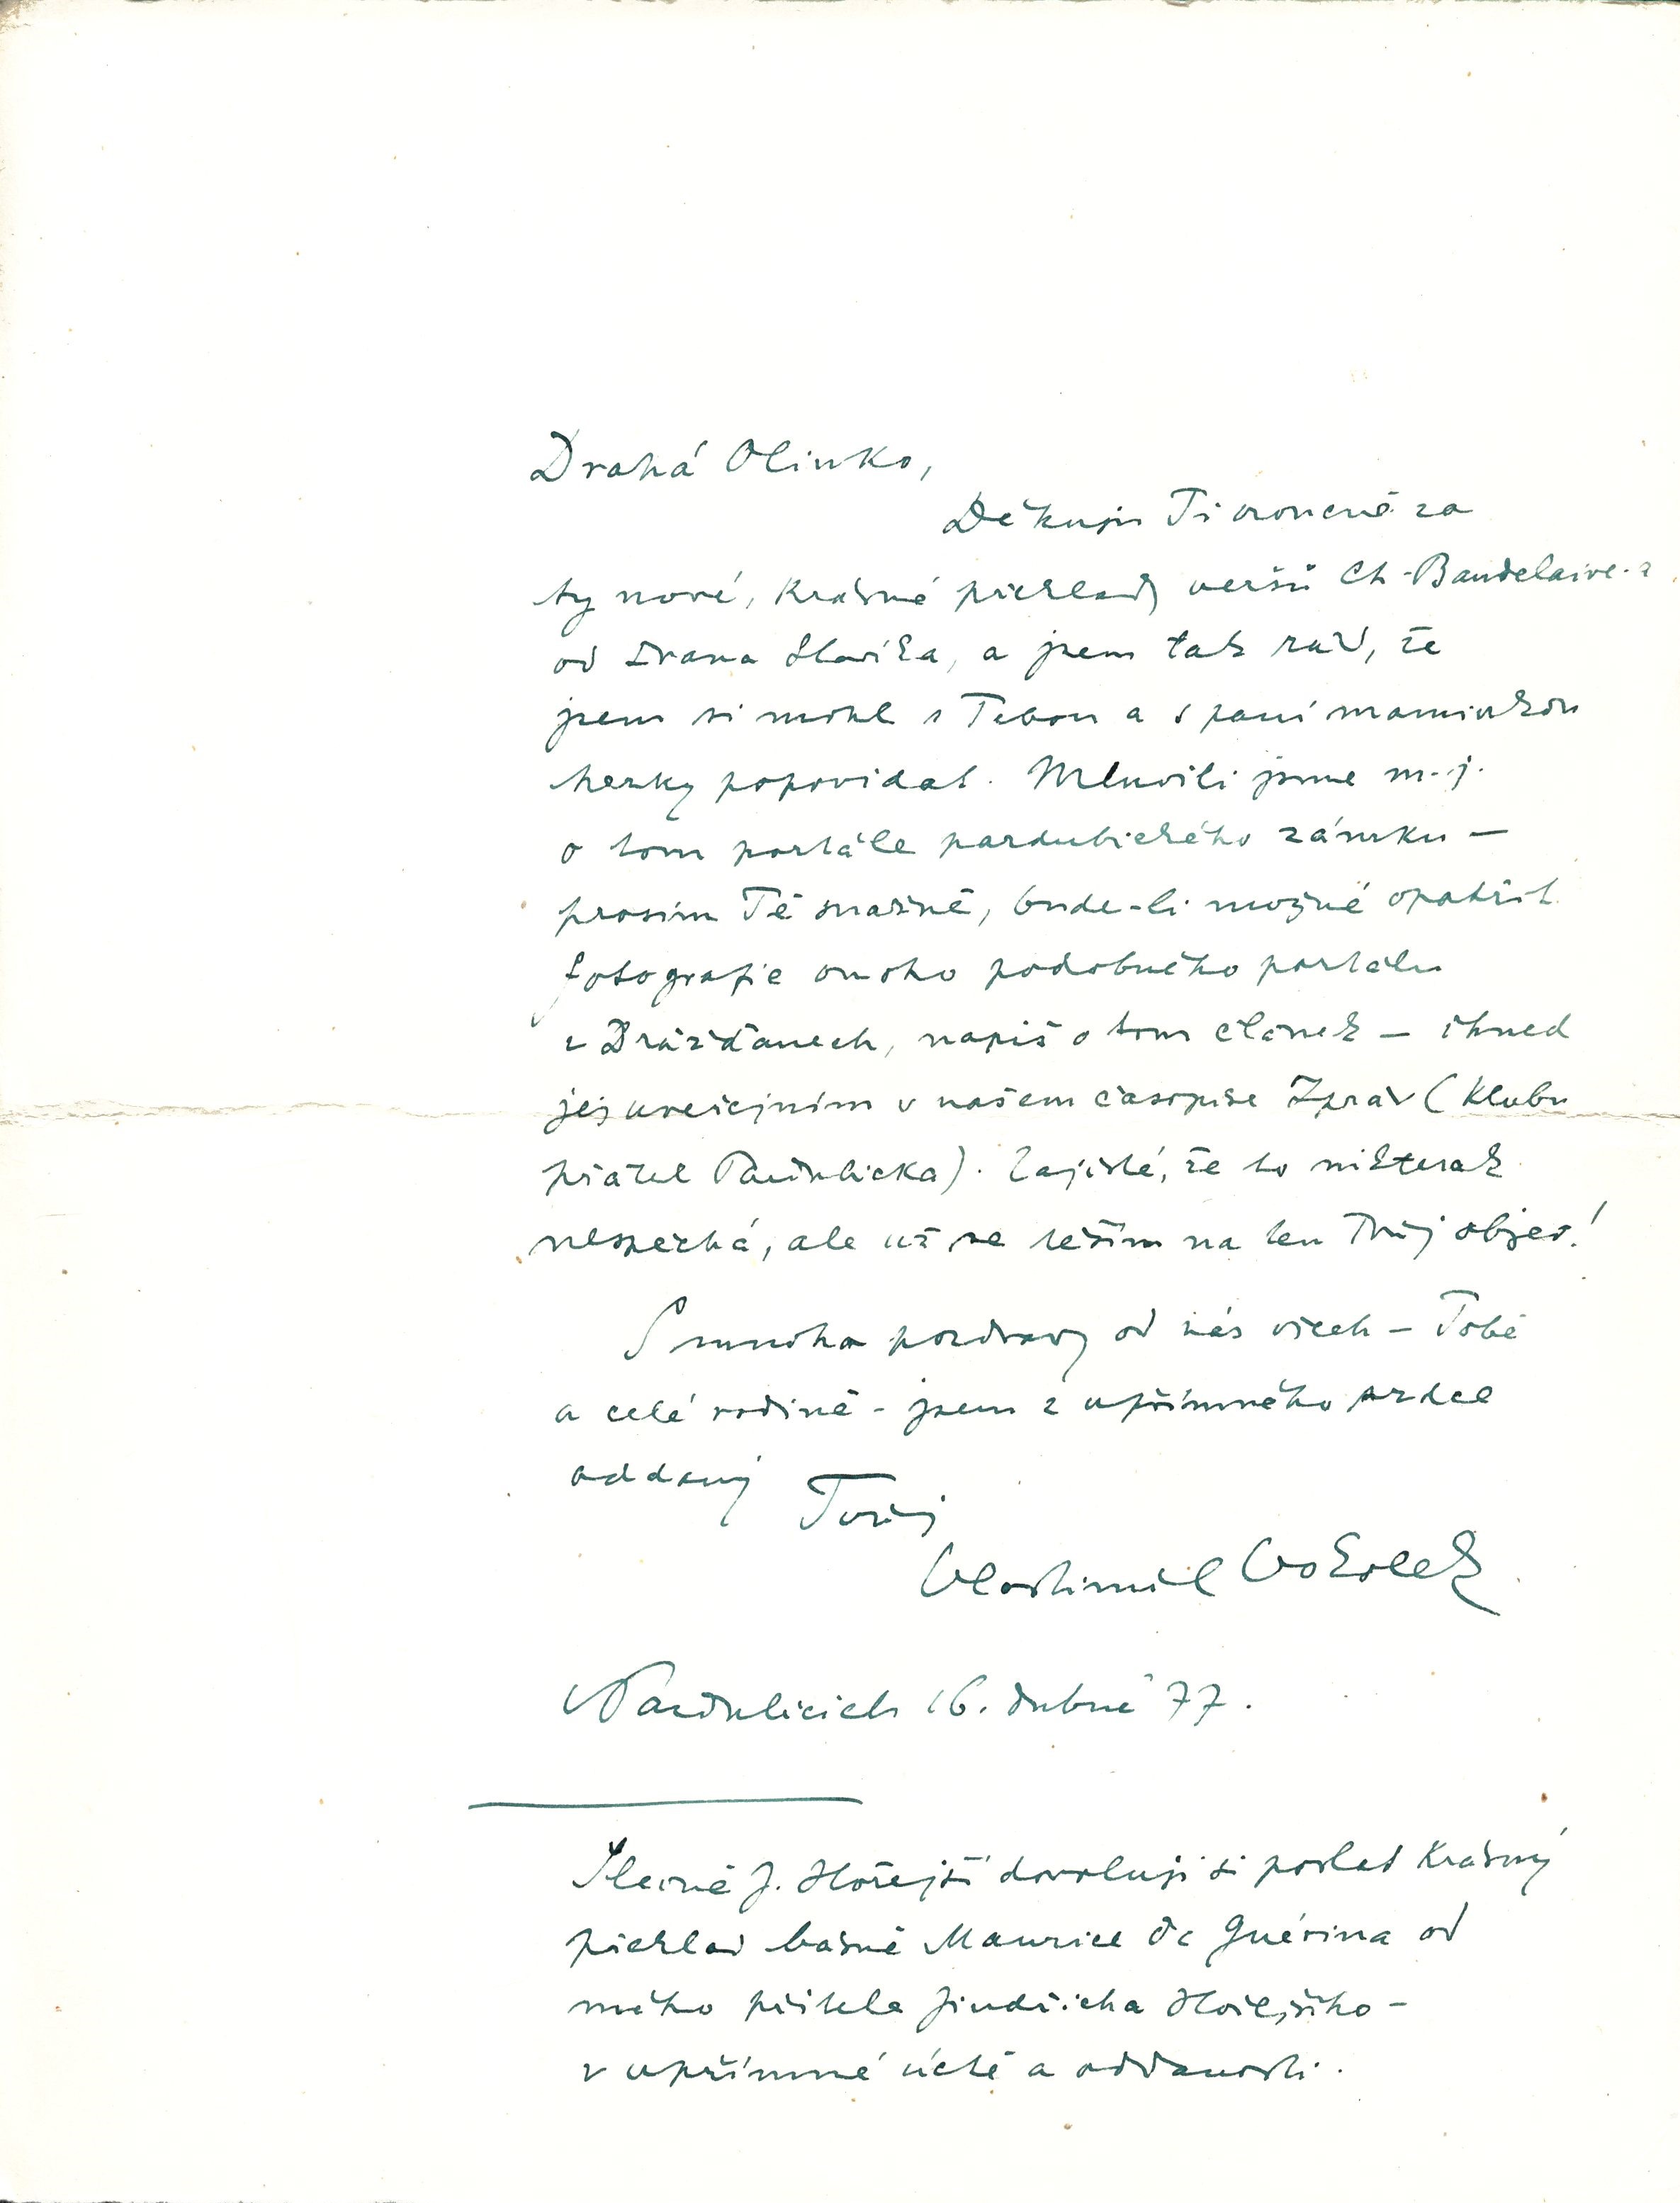 Drahá Olinko,
Děkuji Ti vroucně za
ty nové, krásné překlady veršů Ch. Baudelaire-a
od Ivana Slavíka, a jsem tak rád, že
jsem si mohl s Tebou a s paní maminkou
hezky popovídat. Mluvili jsme m.j.
o tom portále pardubického zámku —
prosím Tě snažně, bude-li možné opatřit
fotografie onoho podobného portálu
v Drážďanech, napiš o tom článek — ihned
jej uveřejním v našem časopise Zpráv (Klubu
přátel Pardubicka). Zajisté, že to nikterak
nespěchá, ale už se těším na ten Tvůj objev!
S mnoha pozdravy od nás všech — Tobě
a celé rodině - jsem z upřímného srdce
oddaný Tvůj
Vlastimil Vokolek
V Pardubicích 16. dubna 77.
Slečně J. Hořejší dovoluji si poslat krásný
překlad básně Maurice de Guérina od
mého přítele Jindřicha Hořejšího —
v upřímné úctě a oddanosti.